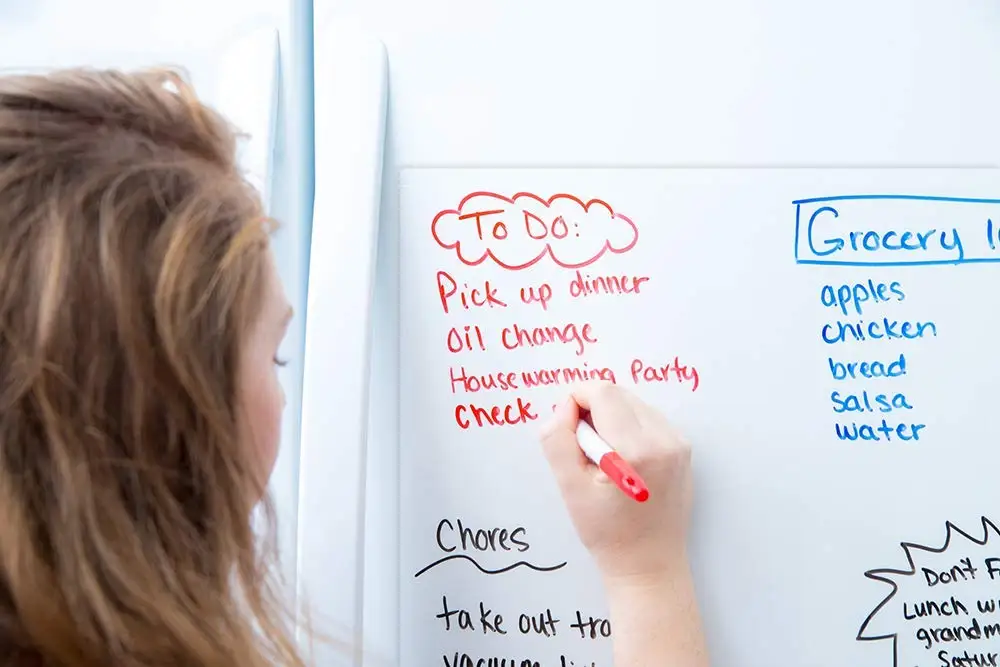 To Do:
Pick up dinner
Oil change
Housewarming Party
Check
Grocery
apples
chicken
bread
salsa
water
Chores
take out
vacuum
Don't
Lunch